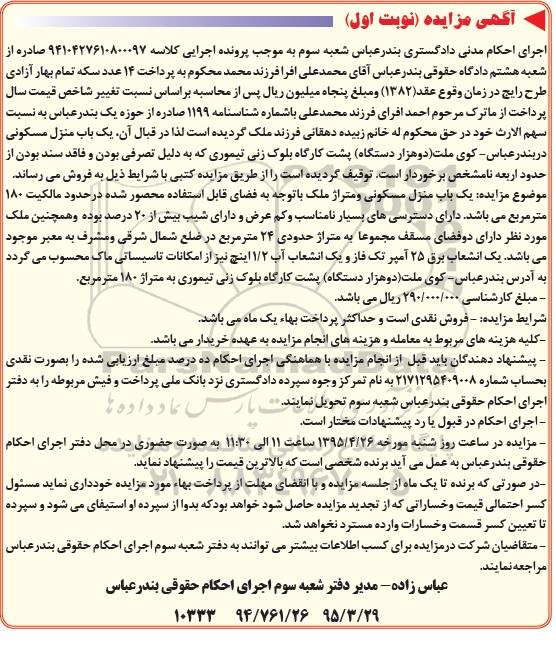 آگهی مزایده (نوبت اول)
اجرای احکام مدنی دادگستری بندرعباس شعبه سوم به موجب پرونده اجرایی کلاسه ۹۴۱۰۴۲۷۶۱۰۸۰۰۰۹۷ صادره از
شعبه هشتم دادگاه حقوقی بندرعباس آقای محمدعلی افرا فرزند محمد محکوم به پرداخت ۱۴ عدد سکه تمام بهار آزادی
طرح رایج در زمان وقوع عقد(۱۳۸۲) ومبلغ پنجاه میلیون ریال پس از محاسبه براساس نسبت تغییر شاخص قیمت سال
پرداخت از ماترک مرحوم احمد افرای فرزند محمدعلی باشماره شناسنامه ۱۱۹۹ صادره از حوزه یک بندرعباس به نسبت
سهم الارث خود در حق محکوم له خانم زبیده دهقانی فرزند ملک گردیده است لذا در قبال آن، یک باب منزل مسکونی
دربندرعباس- کوی ملت(دوهزار دستگاه) پشت کارگاه بلوک زنی تیموری که به دلیل تصرفی بودن و فاقد سند بودن از
حدود اربعه نامشخص برخوردار است. توقیف گردیده است را از طریق مزایده کتبی با شرایط ذیل به فروش می رساند.
موضوع مزایده: یک باب منزل مسکونی ومتراژ ملک باتوجه به فضای قابل استفاده محصور شده درحدود مالکیت ۱۸۰
مترمربع می باشد. دارای دسترسی های بسیار نامناسب وکم عرض و دارای شیب بیش از ۲۰ درصد بوده وهمچنین ملک
مورد نظر دارای دوفضای مسقف مجموعا به متراژ حدودی ۲۴ مترمربع در ضلع شمال شرقی ومشرف به معبر موجود
می باشد. یک انشعاب برق ۲۵ آمپر تک فاز و یک انشعاب آب ۱/۲ اینچ نیز از امکانات تاسیساتی ماک محسوب می گردد
به آدرس بندرعباس- کوی ملت(دوهزار دستگاه) پشت کارگاه بلوک زنی تیموری به متراژ ۱۸۰ مترمربع.
- مبلغ کارشناسی ۲۹۰/۰۰۰/۰۰۰ ریال می باشد.
شرایط مزایده: - فروش نقدی است و حداکثر پرداخت بهاء یک ماه می باشد.
-کلیه هزینه های مربوط به معامله و هزینه های انجام مزایده به عهده خریدار می باشد.
- پیشنهاد دهندگان باید قبل از انجام مزایده با هماهنگی اجرای احکام ده درصد مبلغ ارزیابی شده را بصورت نقدی
بحساب شماره ۲۱۷۱۲۹۵۴۰۹۰۰۸ به نام تمرکز وجوه سپرده دادگستری نزد بانک ملی پرداخت و فیش مربوطه را به دفتر
اجرای احکام حقوقی بندرعباس شعبه سوم تحویل نمایند.
- اجرای احکام در قبول یا رد پیشنهادات مختار است.
- مزایده در ساعت روز شنبه مورخه ۱۳۹۵/۴/۲۶ ساعت ۱۱ الی ۱۱:۳۰ به صورت حضوری در محل دفتر اجرای احکام
حقوقی بندرعباس به عمل می آید برنده شخصی است که بالاترین قیمت را پیشنهاد نماید.
-در صورتی که برنده تا یک ماه از جلسه مزایده و با انقضای مهلت از پرداخت بهاء مورد مزایده خودداری نماید مسئول
کسر احتمالی قیمت وخساراتی که از تجدید مزایده حاصل شود خواهد بودکه بدوا از سپرده او استیفای می شود و سپرده
تا تعیین کسر قسمت وخسارات وارده مسترد نخواهد شد.
- متقاضیان شرکت درمزایده برای کسب اطلاعات بیشتر می توانند به دفتر شعبه سوم اجرای احکام حقوقی بندرعباس
مراجعه نمایند.
عباس زاده- مدیر دفتر شعبه سوم اجرای احکام حقوقی بندرعباس
۹۵/۳/۲۹ ۹۴/۷۶۱/۲۶ ۱۰۳۳۳